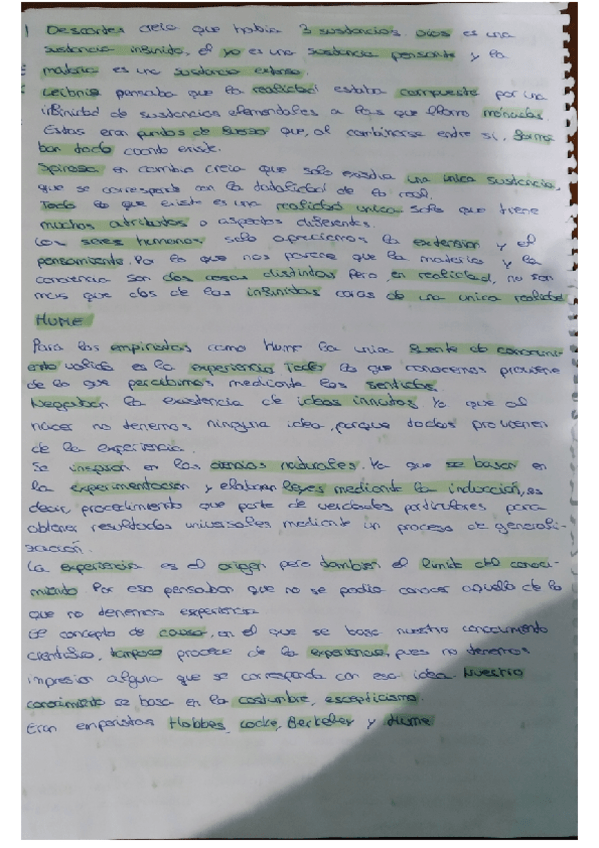 Descartes creía que había 3 sustancias. Dios es una
sustancia infinita, el yo es una sustancia pensante y la
materia es una sustancia extensa.
Leibniz pensaba que la realidad estaba compuesta por una
infinidad de sustancias elementales a las que llamó mónadas.
Estas eran puntos de fuerza que, al combinarse entre sí, forma
ban todo cuando existe.
Spinosa en cambio creía que solo existía una única sustancia,
que se corresponde con la totalidad de lo real.
Todo lo que existe es una realidad única solo que tiene
muchos atributos o aspectos diferentes.
Los seres humanos solo apreciamos la extensión y el
pensamiento. Por lo que nos parece que la materia y la
conciencia son dos cosas distintas pero, en realidad, no son
más que dos de las infinitas caras de una única realidad
HUME
Para los empiristas como Hume la única fuente de conocimi-
ento valida es la experiencia. Todo lo que conocemos proviene
de lo que percibimos mediante los sentidos.
Negaban la existencia de ideas innatas ya que al
nacer no tenemos ninguna idea, porque todas provienen
de la experiencia.
Se inspiran en las ciencias naturales. Ya que se basan en
la experimentación y elaboran leyes mediante la inducción, es
decir, procedimiento que parte de verdades particulares para
obtener resultados universales mediante un proceso de generali-
zación.
La experiencia es el origen pero también el límite del conoci-
miento. Por eso pensaban que no se podía conocer aquello de lo
que no tenemos experiencia
El concepto de causa, en el que se basa nuestro conocimiento
científico, tampoco procede de la experiencia, pues no tenemos
impresión alguna que se corresponda con esa idea. Nuestro
conocimiento se basa en la costumbre, escepticismo.
Eran empiristas Hobbes, Locke, Berkeley y Hume